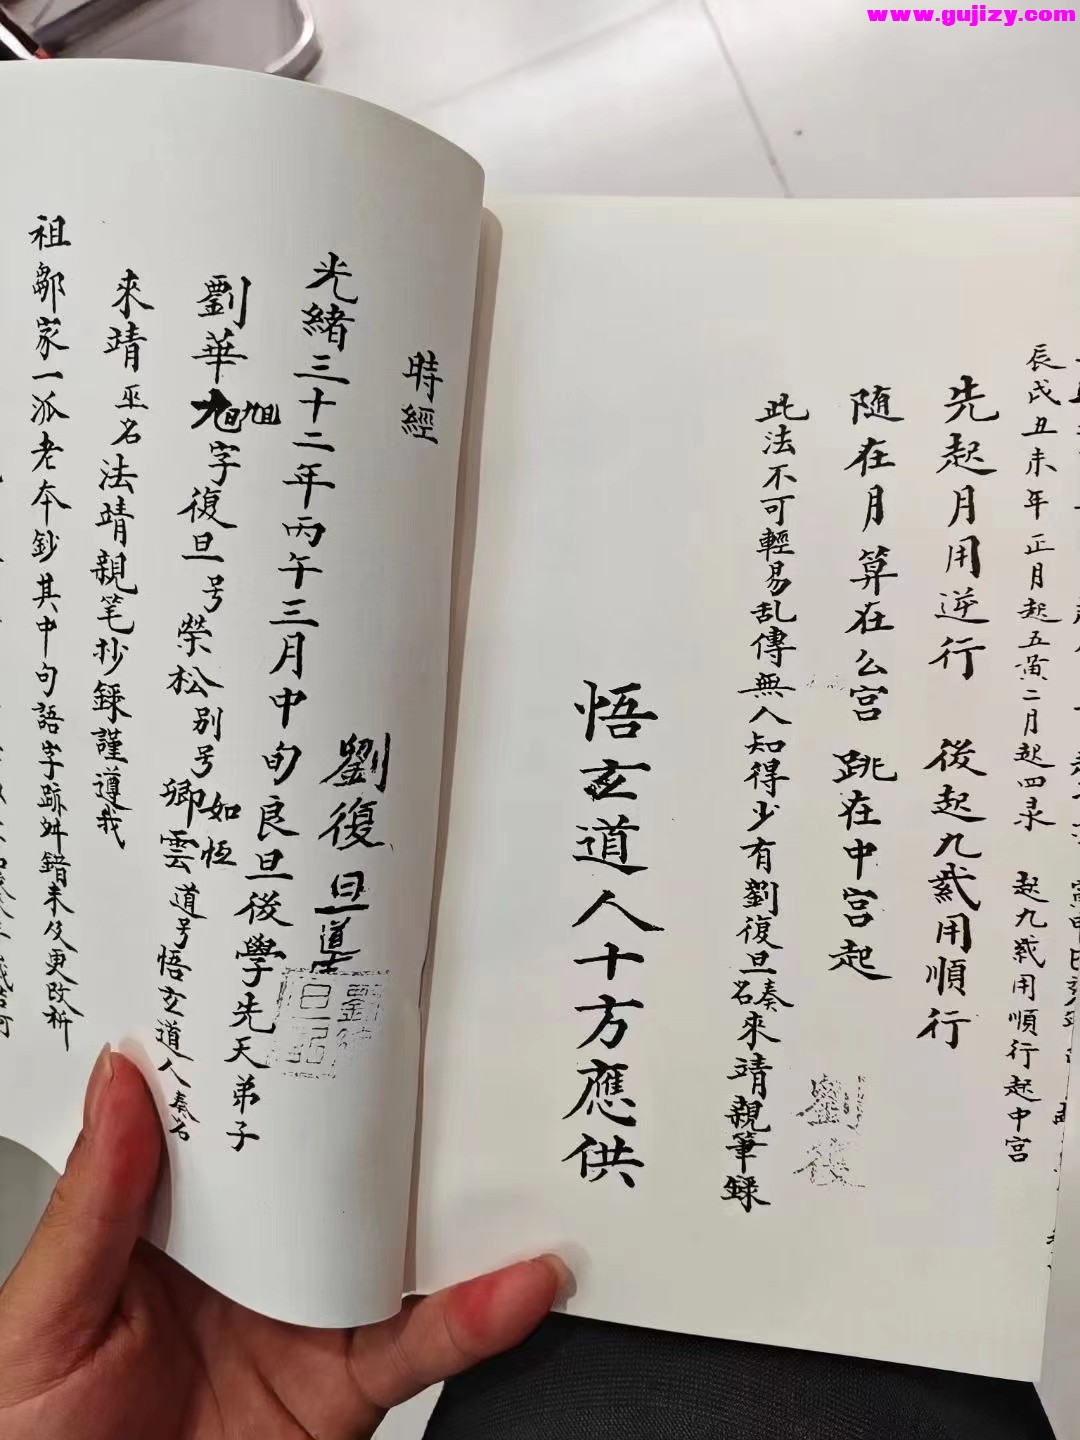 www.gujizy.com
辰戌丑未年正月起五黃二月起四录 起九紫用順行起中宫
先起月用逆行 後起九紫用順行
随在月算在么宫 跳在中宫起
此法不可輕易乱傳無人知得少有劉復旦奏名來靖親筆録
劉復
悟玄道人十方應供
時經
劉復旦道
光緒三十二年丙午三月中旬良旦後學先天弟子
劉華旭旭字復旦号榮松别号如恆卿雲道号悟玄道人奏名
來靖巫名法靖親笔抄録謹遵我
祖鄒家一派老本鈔其中句語字跡舛錯未及更改析